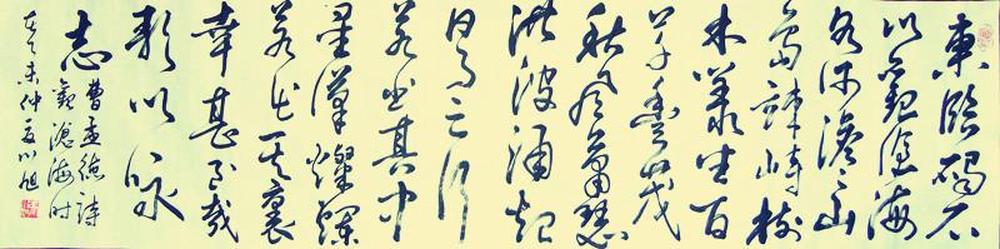 東臨碣石
以觀滄海
水何澹々山
島竦峙樹
木叢生百
草豐茂
秋風蕭瑟
洪波涌起
日月之行
若出其中
星漢燦爛
若出其裏
幸甚至哉
歌以詠
志
曹孟德詩
觀滄海时
在乙未仲夏